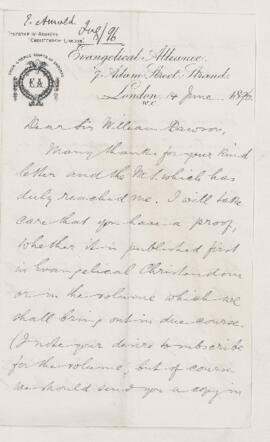 E. Arnold
July/96
"CHRISTENDOM LONDON."
E A
Evangelical Alliance,
7, Adam Street, Strand,
London, 14 June 1896
W.C.
Dear Sir William Dawson,
Many thanks for your kind
letter and the MS which has
duly reached me. I will take
care that you have a proof,
whether it is published first
in Evangelical Christendom
or in the volume which we
shall bring out in due course.
(I note your desire to subscribe
for the volume, but of course
we should send you a copy in